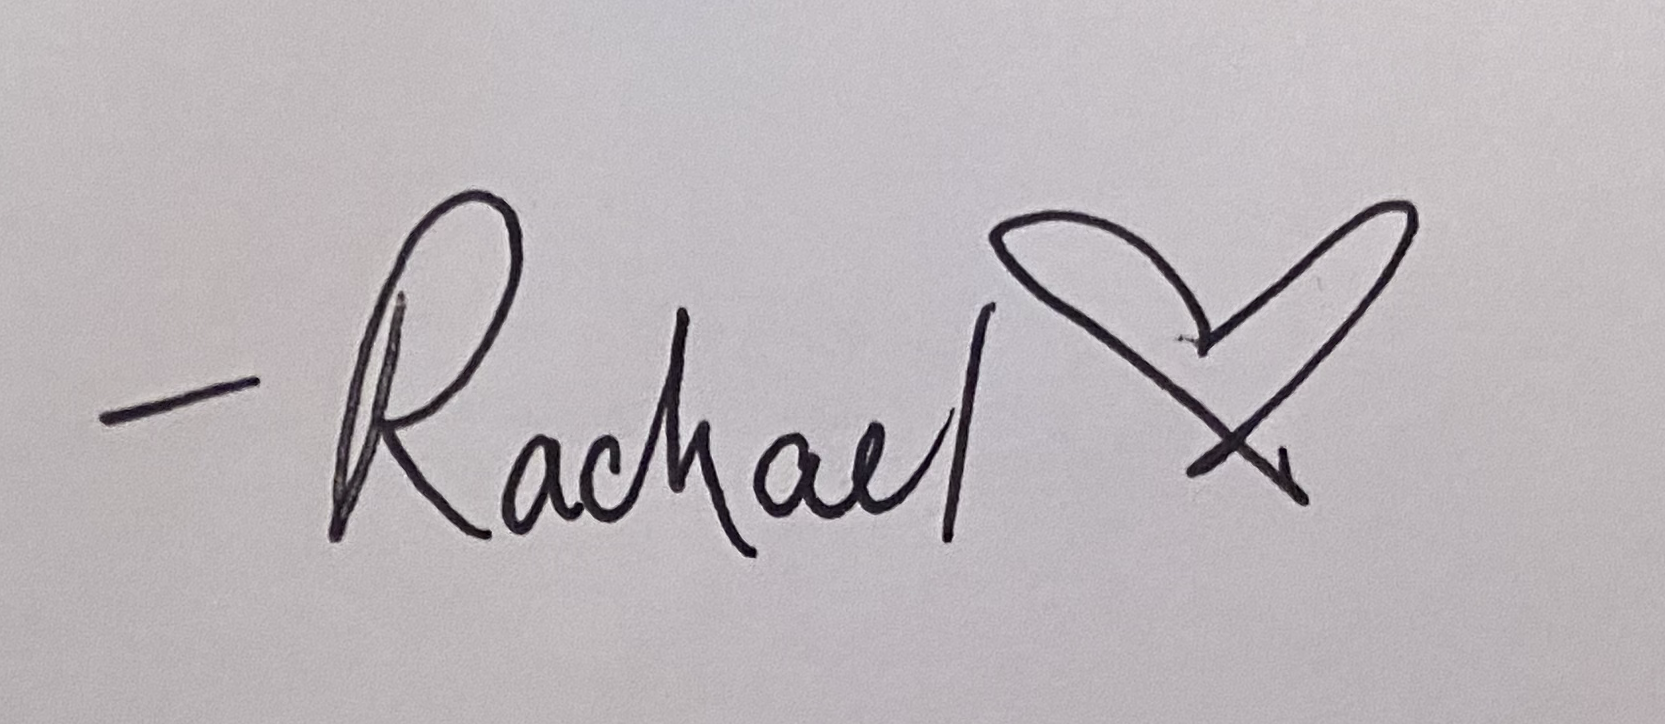 - Rachael ♡